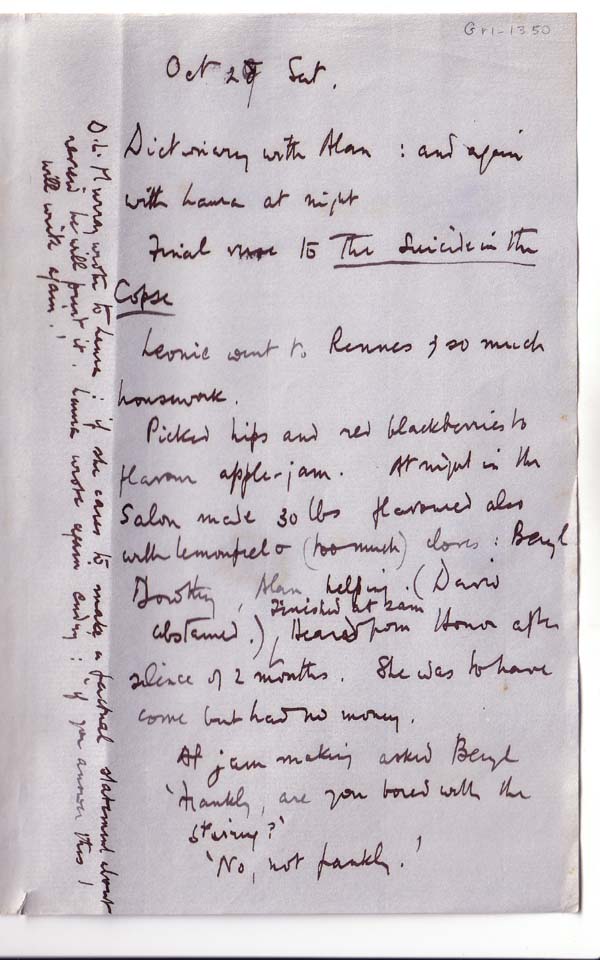 Gr1-1350
Oct 29 Sat.
Dictionary with Alan : and again
with Laura at night
Final verse to The Suicide in the
Copse
Leonie went to Rennes & so much
housework.
Picked hips and red blackberries to
flavour apple-jam. At night in the
Salon made 30 lbs flavoured also
with lemonpeel & (too much) cloves : Beryl
Dorothy, Alan helping. (David
Finished at 2am
abstained.), Heard from Honor after
silence of 2 months. She was to have
come but had no money.
At jam making asked Beryl
'Frankly, are you bored with the
stirring?'
'No, not frankly.'
D.L. Murray wrote to Laura : if she cares to make a factual statement about
review he will print it. Laura wrote again ending : 'if you answer this I
will write again.'